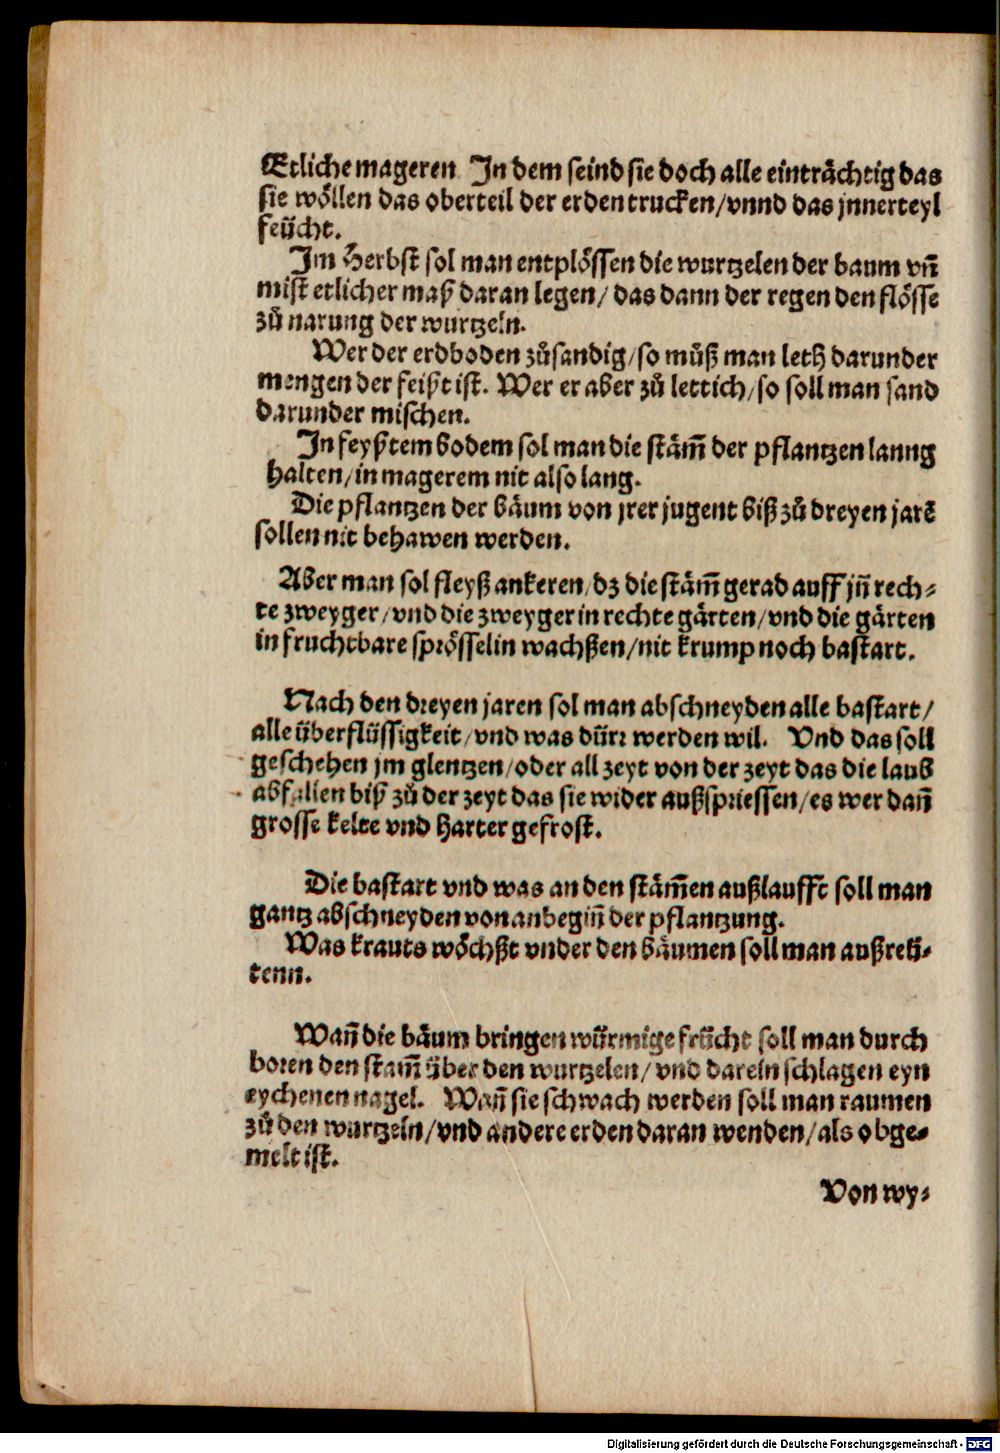 Etliche mageren. In dem seind sie doch alle einträchtig das
sie wöllen das oberteil der erden trucken/vnnd das jnnerteyl
feücht.
Im Herbst sol man entplössen die wurtzelen der baum vñ
mist etlicher maß daran legen/ das dann der regen den flösse
zů narung der wurtzeln.
Wer der erdboden zůsandig/so můß man letß darunder
mengen der feißt ist. Wer er aber zů lettich/so soll man sand
darunder mischen.
In feyßtem bodem sol man die stäm̃ der pflantzen lanng
halten/in magerem nit also lang.
Die pflantzen der bäum von jrer jugent biß zů dreyen jarẽ
sollen nit behawen werden.
Aber man sol fleyß ankeren/dz die stäm̃ gerad auff jñ rech-
te zweyger/vnd die zweyger in rechte gärten/vnd die gärten
in fruchtbare sprösselin wachßen/nit krump noch bastart.
Nach den dreyen jaren sol man abschneyden alle bastart/
alle überflüssigkeit/vnd was dürr werden wil. Vnd das soll
geschehen jm glentzen/oder all zeyt von der zeyt das die laub
abfallen biß zů der zeyt das sie wider außspriessen/es wer dañ
grosse kelte vnd harter gefrost.
Die bastart vnd was an den stäm̃en außlaufft soll man
gantz abschneyden von anbegiñ der pflantzung.
Was krauts wöchßt vnder den bäumen soll man außreü-
tenn.
Wañ die bäum bringen würmige frücht soll man durch
boren den stam̃ über den wurtzelen/ vnd darein schlagen eyn
eychenen nagel. Wañ sie schwach werden soll man raumen
zů den wurtzeln/vnd andere erden daran wenden/als obge-
melt ist.
Von wy-
Digitalisierung gefördert durch die Deutsche Forschungsgemeinschaft - DFG